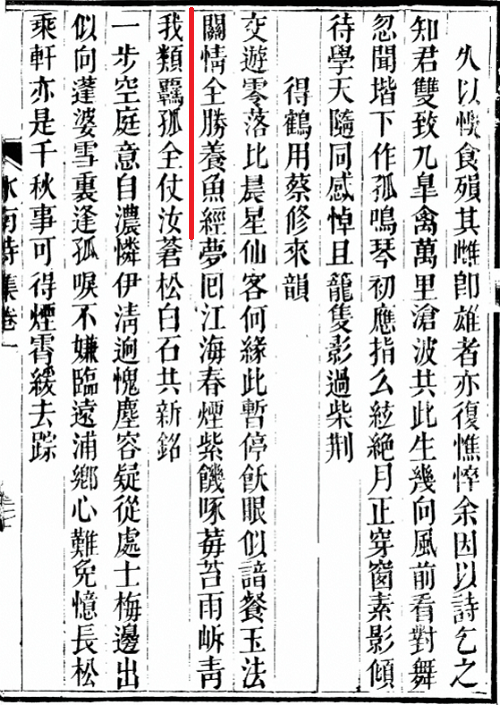 久以悞食殞其雌卽雄者亦復憔悴余因以詩乞之
知君雙致九皐禽萬里滄波共此生幾向風前看對舞
忽聞堦下作孤鳴琴初應指么絃絶月正穿窗素影傾
待學天隨同感悼且籠隻影過柴荆
得鶴用蔡修來韻
交遊零落比晨星仙客何緣此暫停飫眼似諳餐玉法
關情全勝養魚經夢囘江海春煙紫饑啄莓苔雨岞靑
我類羈孤全仗汝蒼松白石共新銘
一步空庭意自濃憐伊淸逈愧塵容疑從處士梅邊出
似向蓬婆雪裏逢孤唳不嫌臨遠浦鄉心難免憶長松
乘軒亦是千秋事可得煙霄緩去踪
水南詩集卷一